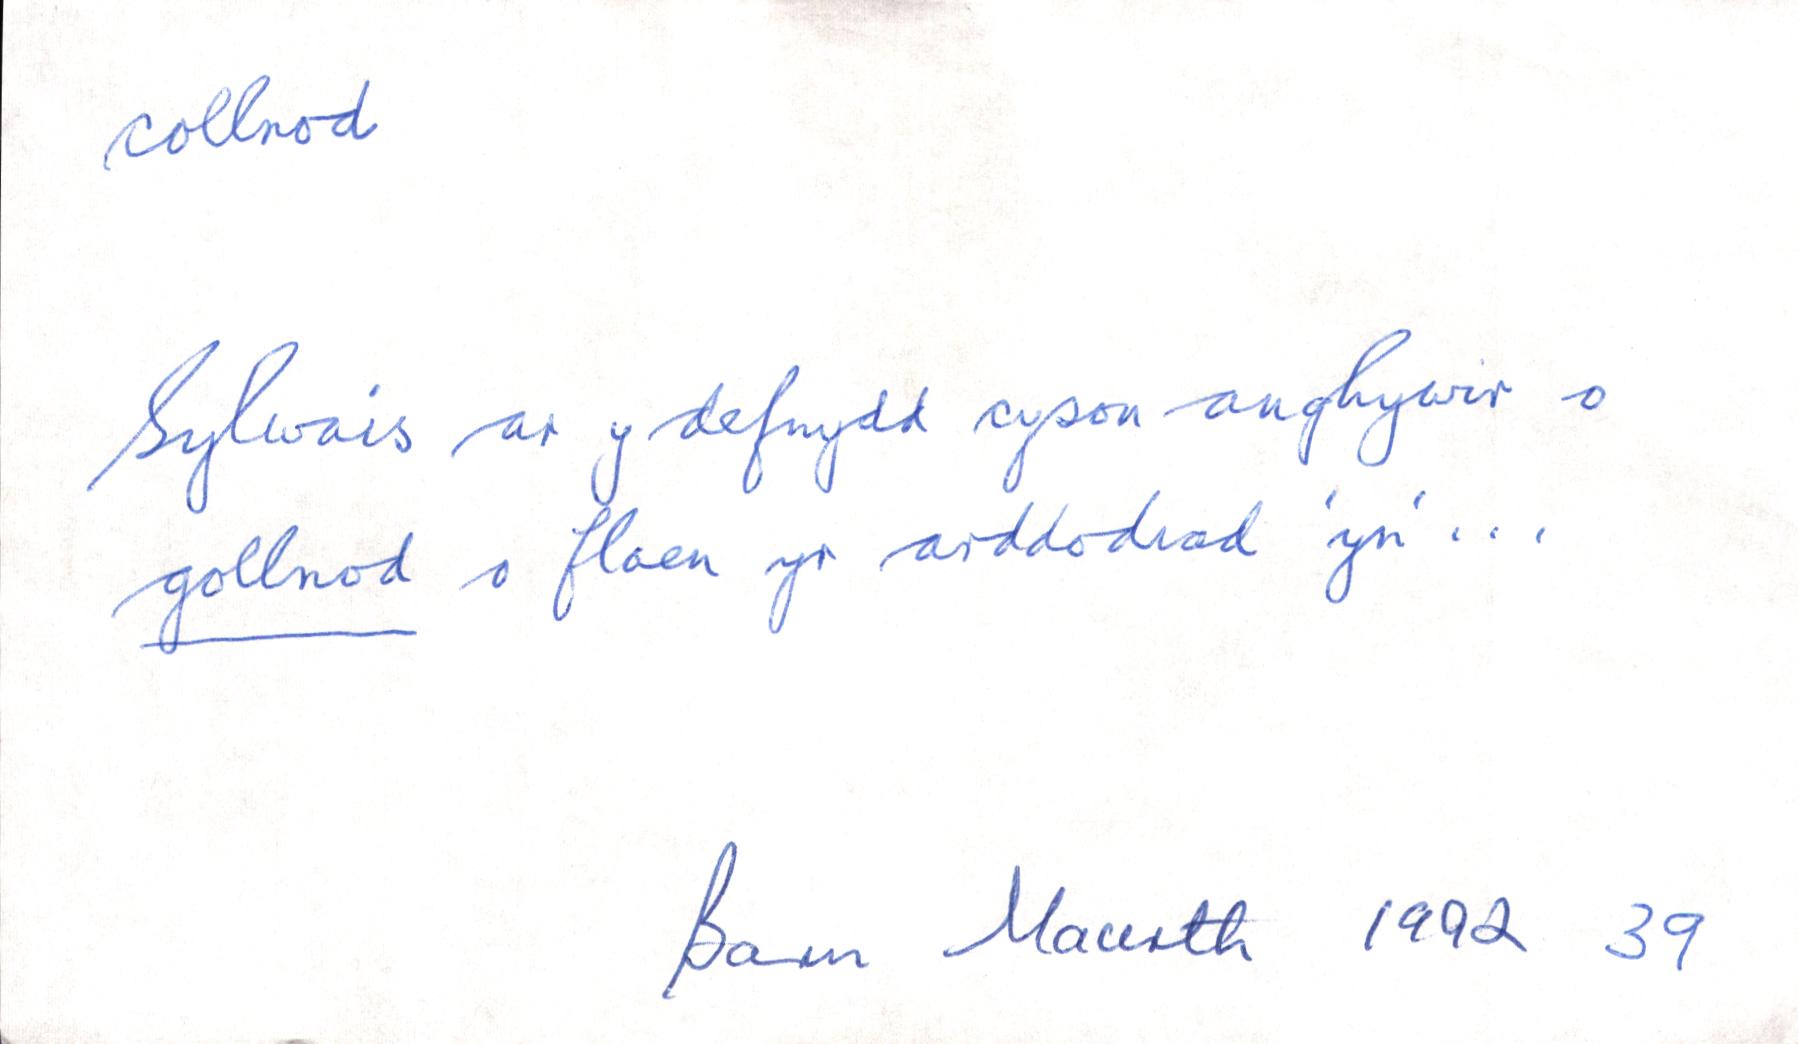 collnod
Sylwais ar y defnydd cyson anghywir o
gollnod o flaen yr arddodiad 'yn' ...
Barn Mawrth 1992 39